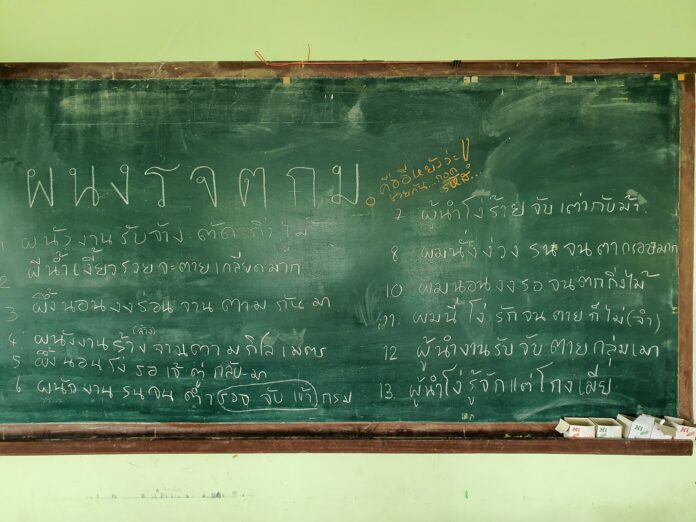 ผนงรจตกม
คืออีหยังว่ะ
ช่วยกัน...ถอด
รหัส...
1 ผนังงานรับจ้าง ตัดกิ่งไม้
2 ผีน้ำเงี้ยวรวยจะตายเกลียดมาก
3 ผึ้งนอนงงร่อนจานตามกันมา
4. ผนังงานร้าง(ล้าง)จานตามกิโลเมตร
5 ผึ้งนอนโง่รอเจ้ตู่กลับมา
6 ผนังงานรนจนต่ำรวจ จับเข้ากรม
7 ผู้นำโง่ร้ายจับเต่ากับม้า
8 ผมนั่งง่วงรนจนตากรอบมาก
10 ผมนอนงงรอจนตกกิ่งไม้
11. ผมนี้โง่รักจนตายก็ไม่(จำ)
12 ผู้นำงานรับจับตายกลุ่มเมา
13. ผู้นำโง่รู้จักแต่โกงเมีย